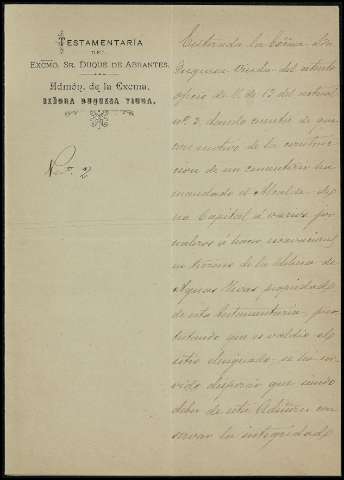 TESTAMENTARÍA
DEL
EXCMO. SR. DUQUE DE ABRANTES.
Admón. de la Excma.
SEÑORA DUQUESA VIUDA.
Núm. 2
Enterada la Excma. Sra.
Duquesa Viuda del atento
oficio de V. de 13 del actual
nº 2, dando cuenta de que
con motivo de la construc-
ción de un cementerio ha
mandado el Alcalde de
esa Capital á varios jor-
naleros á hacer excavaciones
en terreno de la dehesa de
Aguas Vivas, propiedad
de esta testamentaria, pre-
testando que es valdío el
sitio designado, se ha ser-
vido disponer que siendo
deber de esta Admón. con-
servar la integridad